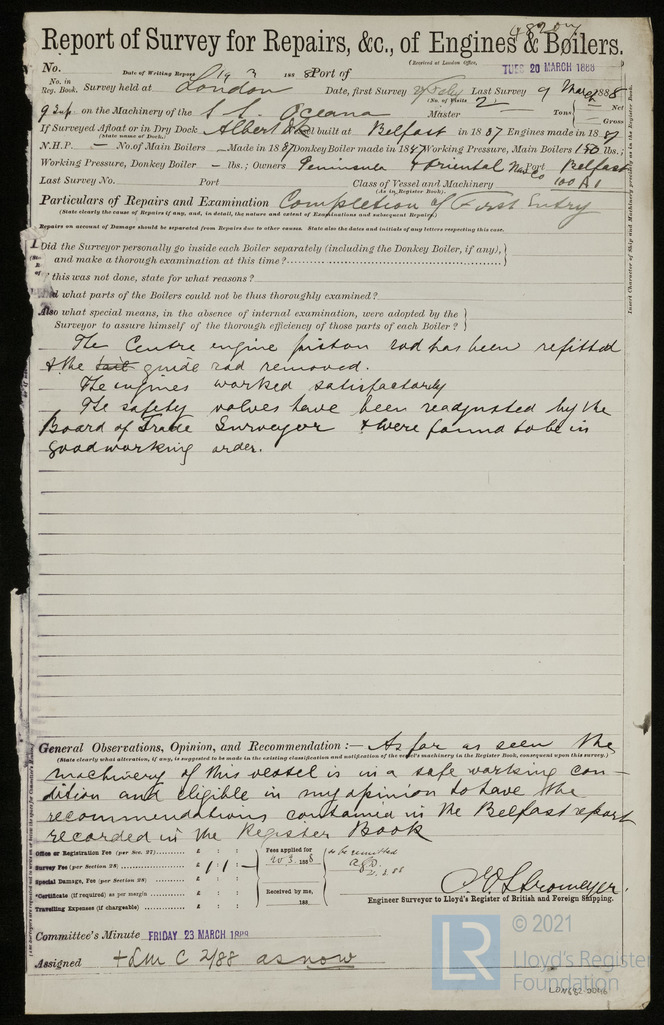 Report of Survey for Repairs, &c., of Engines & Boilers.
(Received at London Office,
No. Date of Writing Report 19 3 1888 Port of TUES 20 MARCH 1888
No. in Reg. Book. Survey held at London Date, first Survey Feby Last Survey 9 March 1888
(No. of Visits 2
on the Machinery of the S.S. Oceana Master Tons Net Gross
If Surveyed Afloat or in Dry Dock Albert Dk built at Belfast in 1887 Engines made in 1887
(State name of Dock.)
N.H.P. — No. of Main Boilers — Made in 1887 Donkey Boiler made in 1887 Working Pressure, Main Boilers 150 lbs;
Working Pressure, Donkey Boiler — lbs; Owners Peninsula & Oriental Nav Co Port Belfast
Last Survey No. Port Class of Vessel and Machinery 100 A1
(As in Register Book).
Particulars of Repairs and Examination Completion of First Entry
(State clearly the cause of Repairs if any, and, in detail, the nature and extent of Examinations and subsequent Repairs.)
Repairs on account of Damage should be separated from Repairs due to other causes. State also the dates and initials of any letters respecting this case.
Did the Surveyor personally go inside each Boiler separately (including the Donkey Boiler, if any),
and make a thorough examination at this time?
this was not done, state for what reasons?
what parts of the Boilers could not be thus thoroughly examined?
Also what special means, in the absence of internal examination, were adopted by the
Surveyor to assure himself of the thorough efficiency of those parts of each Boiler?
The Centre engine piston rod has been refitted
& the guide rod removed.
The engines worked satisfactorily
The safety valves have been readjusted by the
Board of Trade Surveyor & were found to be in
good working order.
General Observations, Opinion, and Recommendation:— As far as seen the
(State clearly what alteration, if any, is suggested to be made in the existing classification and notification of the vessel's machinery in the Register Book, consequent upon this survey.)
machinery of this vessel is in a safe working con-
dition and eligible in my opinion to have the
recommendations contained in the Belfast report
recorded in the Register Book
Office or Registration Fee (per Sec. 27) £ : : Fees applied for
Survey Fee (per Section 28) £ 1 : 1 : — 20.3.1888 to be remitted
Special Damage, Fee (per Section 28) £ : :
*Certificate (if required) as per margin £ : : Received by me,
Travelling Expenses (if chargeable) £ : : 188
C. E. Stromeyer.
Engineer Surveyor to Lloyd's Register of British and Foreign Shipping.
Committee's Minute FRIDAY 23 MARCH 1888
Assigned + LMC 2/88 as now
Insert Character of Ship and Machinery precisely as in the Register Book.
LR
© 2021
Lloyd's Register
Foundation
LDN682-0046